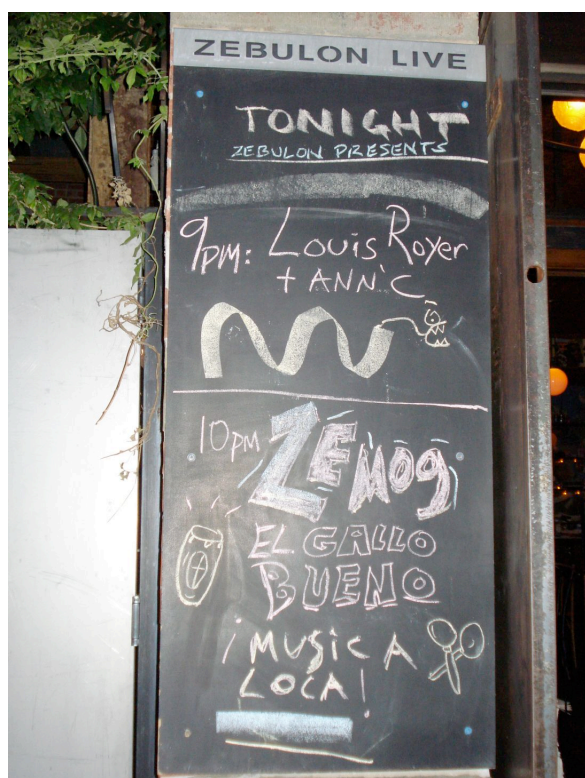 ZEBULON LIVE
TONIGHT
ZEBULON PRESENTS
9PM: Louis Royer
+ ANN'C
10PM ZEMOG
EL GALLO
BUENO
¡MUSICA
LOCA!